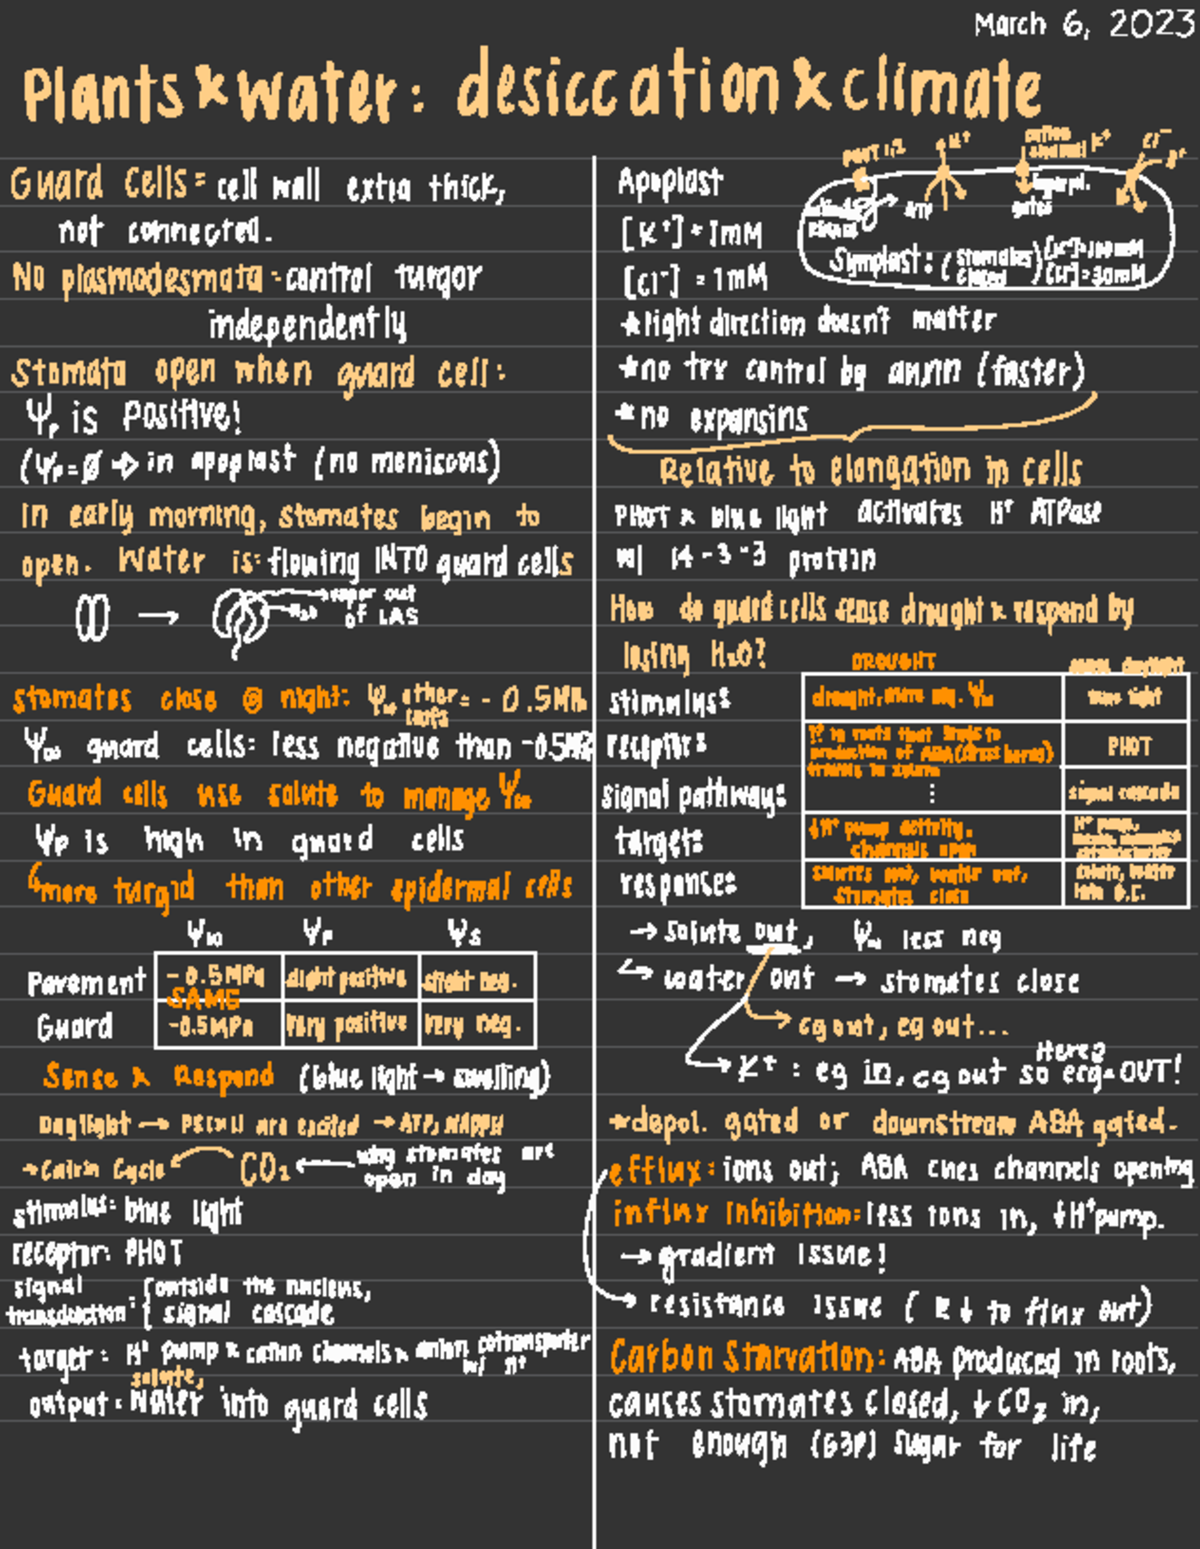 March 6, 2023
Plants & water: desiccation & climate
Guard Cells = cell wall extra thick,
not connected.
No plasmodesmata - control turgor
independently
Stomata open when guard cell:
Ψp is positive!
(Ψp = Ø → in apoplast (no meniscus)
In early morning, stomates begin to
open. Water is: flowing INTO guard cells
→ vapor out
of IAS
stomates close @ night: Ψw other = - 0.5MPa
cells
Ψw guard cells: less negative than -0.5MPa
Guard cells use solute to manage Ψw
Ψp is high in guard cells
↳ more turgid than other epidermal cells
Ψw Ψp Ψs
Pavement -0.5MPa slight positive slight neg.
SAME
Guard -0.5MPa very positive very neg.
Sense & Respond (blue light → swelling)
Daylight → PSI & II are excited → ATP, NADPH
→ Calvin Cycle CO₂ ← why stomates are
open in day
stimulus: blue light
receptor: PHOT
signal
transduction: { outside the nucleus,
signal cascade
target: H⁺ pump & cation channels & anion cotransporter
w/ H⁺
solute,
output: Water into guard cells
PHOT 1/2 H⁺ cation channel K⁺ Cl⁻ H⁺
Apoplast
[K⁺] = 1mM
[Cl⁻] = 1mM
ATP hyperpol.
gated
Symplast: (stomates closed) [K⁺]=100mM
[Cl⁻]=30mM
*light direction doesn't matter
*no trx control by auxin (faster)
*no expansins
Relative to elongation in cells
PHOT & blue light activates H⁺ ATPase
w/ 14-3-3 protein
How do guard cells sense drought & respond by
losing H₂O?
DROUGHT daylight
stimulus: drought, more neg. Ψw blue light
receptor: ?? in roots that leads to
production of ABA (stress horm.) PHOT
travels in xylem
signal pathway: ⋮ signal cascade
target: ↓H⁺ pump activity, H⁺ pump,
channels open
response: solutes out, water out, solute, water
stomates close into G.C.
→ solute out, Ψw less neg
↳ water out → stomates close
→ cg out, eg out...
Here?
→ K⁺ : eg in, cg out so ecg = OUT!
*depol. gated or downstream ABA gated.
efflux: ions out; ABA cues channels opening
influx inhibition: less ions in, ↓H⁺ pump.
→ gradient issue!
→ resistance issue (R↓ to flux out)
Carbon Starvation: ABA produced in roots,
causes stomates closed, ↓CO₂ in,
not enough (G3P) sugar for life